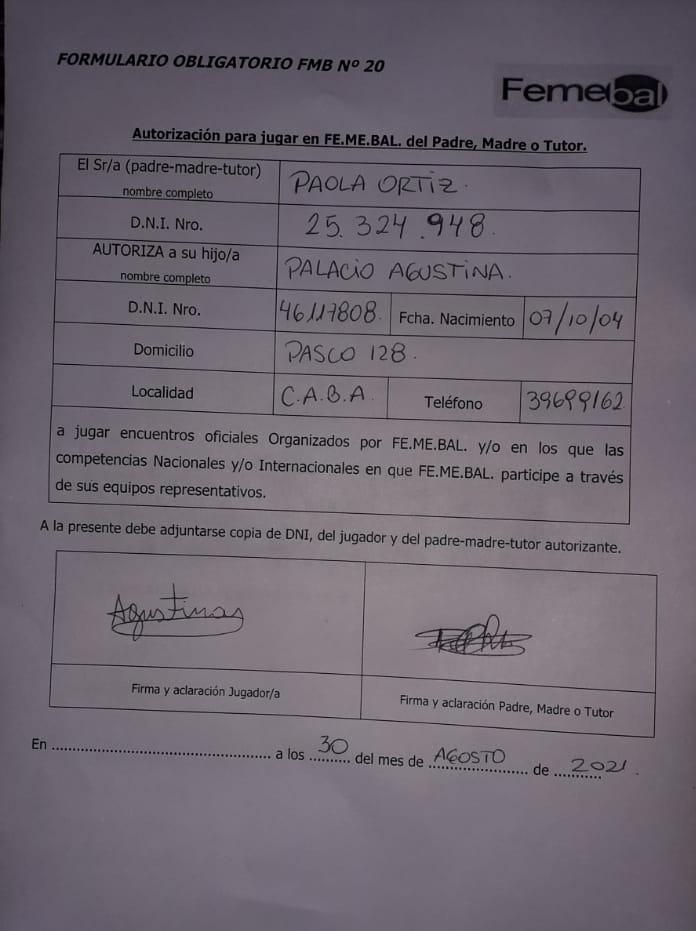 FORMULARIO OBLIGATORIO FMB Nº 20
Femebal
Autorización para jugar en FE.ME.BAL. del Padre, Madre o Tutor.
El Sr/a (padre-madre-tutor)
nombre completo
PAOLA ORTIZ.
D.N.I. Nro.
25.324.948.
AUTORIZA a su hijo/a
nombre completo
PALACIO AGUSTINA.
D.N.I. Nro.
46117808.
Fcha. Nacimiento
07/10/04
Domicilio
PASCO 128.
Localidad
C.A.B.A.
Teléfono
39699162
a jugar encuentros oficiales Organizados por FE.ME.BAL. y/o en los que las
competencias Nacionales y/o Internacionales en que FE.ME.BAL. participe a través
de sus equipos representativos.
A la presente debe adjuntarse copia de DNI, del jugador y del padre-madre-tutor autorizante.
Firma y aclaración Jugador/a
Firma y aclaración Padre, Madre o Tutor
En ........ a los 30 del mes de AGOSTO de 2021.